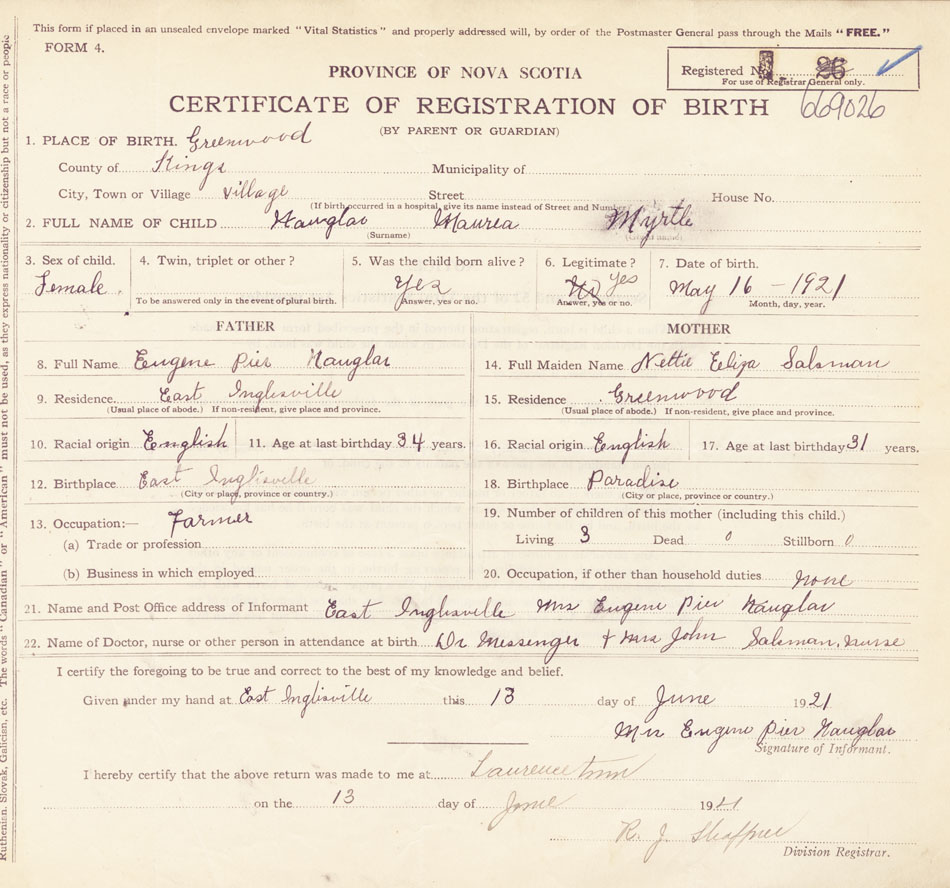 This form if placed in an unsealed envelope marked "Vital Statistics" and properly addressed will, by order of the Postmaster General pass through the Mails "FREE."
FORM 4.
PROVINCE OF NOVA SCOTIA
Registered No. 26
For use of Registrar General only.
CERTIFICATE OF REGISTRATION OF BIRTH 669026
(BY PARENT OR GUARDIAN)
1. PLACE OF BIRTH. Greenwood
County of Kings Municipality of
City, Town or Village village Street House No.
(If birth occurred in a hospital, give its name instead of Street and Number)
2. FULL NAME OF CHILD Nauglar Maurea Myrtle
(Surname) (Given name)
3. Sex of child. 4. Twin, triplet or other? 5. Was the child born alive? 6. Legitimate? 7. Date of birth.
Female Yes No Yes May 16 - 1921
To be answered only in the event of plural birth. Answer, yes or no. Answer, yes or no. Month, day, year.
FATHER
8. Full Name Eugene Pier Nauglar
9. Residence East Inglisville
(Usual place of abode.) If non-resident, give place and province.
10. Racial origin English 11. Age at last birthday 34 years.
12. Birthplace East Inglisville
(City or place, province or country.)
13. Occupation:— Farmer
(a) Trade or profession
(b) Business in which employed
MOTHER
14. Full Maiden Name Nettie Eliza Salsman
15. Residence Greenwood
(Usual place of abode.) If non-resident, give place and province.
16. Racial origin English 17. Age at last birthday 31 years.
18. Birthplace Paradise
(City or place, province or country.)
19. Number of children of this mother (including this child.)
Living 3 Dead 0 Stillborn 0
20. Occupation, if other than household duties none
21. Name and Post Office address of Informant East Inglisville Mrs Eugene Pier Nauglar
22. Name of Doctor, nurse or other person in attendance at birth Dr Messenger + Mrs John Salsman, nurse
I certify the foregoing to be true and correct to the best of my knowledge and belief.
Given under my hand at East Inglisville this 13 day of June 1921
Mrs Eugene Pier Nauglar
Signature of Informant.
I hereby certify that the above return was made to me at Laurencetown
on the 13 day of June 1921
R. J. Shaffner
Division Registrar.
Ruthenian, Slovak, Galician, etc. The words "Canadian" or "American" must not be used, as they express nationality or citizenship but not a race or people